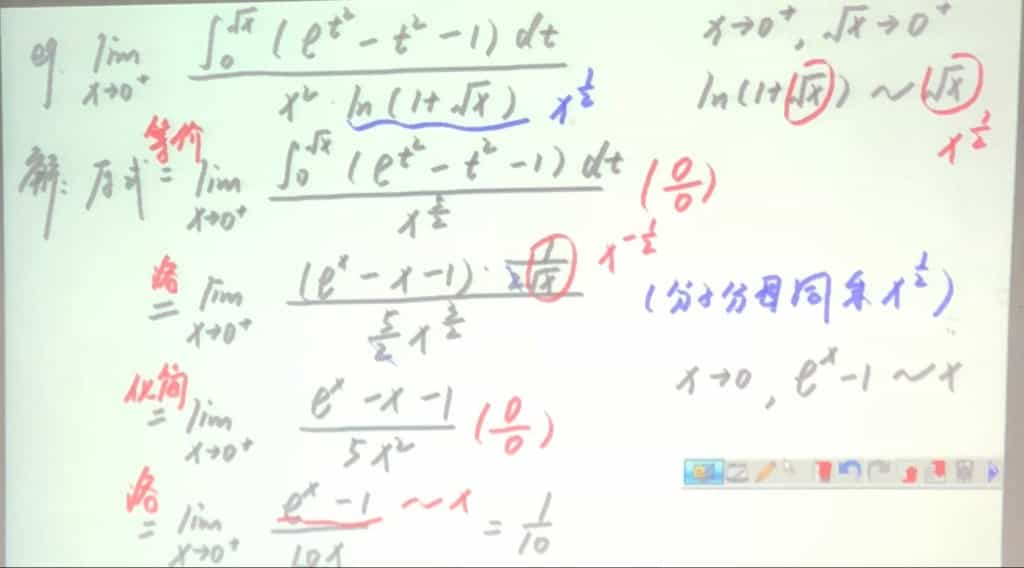 eg. lim x→0⁺ ∫₀^√x (e^t² - t² - 1) dt / x² · ln(1+√x) x^½
x→0⁺, √x→0⁺
ln(1+√x) ~ √x
x^½
解: 原式 等价 = lim x→0⁺ ∫₀^√x (e^t² - t² - 1) dt / x^(5/2) (0/0)
洛 = lim x→0⁺ (e^x - x - 1) · 1/(2√x) / (5/2) x^(3/2) x^(-½)
(分子分母同乘 x^½)
化简 = lim x→0⁺ (e^x - x - 1) / 5x² (0/0)
x→0, e^x - 1 ~ x
洛 = lim x→0⁺ (e^x - 1) / 10x ~ x = 1/10